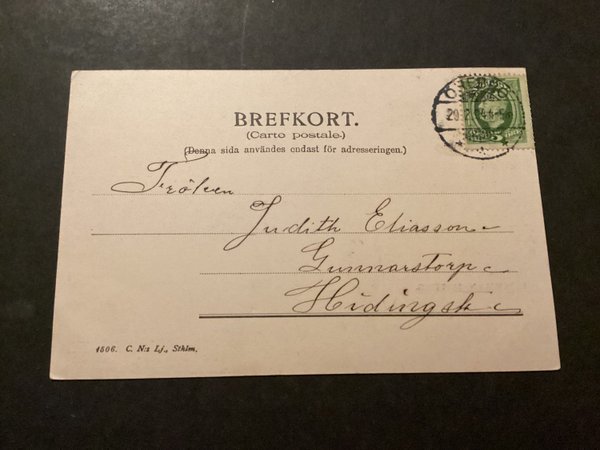 BREFKORT.
(Carte postale.)
(Denna sida användes endast för adresseringen.)
ÖREBRO
Fröken
Judith Eliasson
Gunnarstorp
Hidingsta
1506. C. N:s Lj., Sthlm.